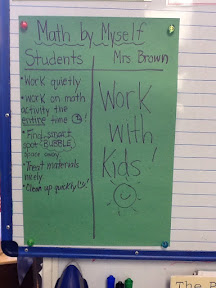 Math by Myself
Students
• Work quietly
• Work on math
activity the
entire time
• Find smart
spot (BUBBLE
space away
• Treat materials
nicely
• Clean up quickly
Mrs. Brown
Work
with
Kids!
The P